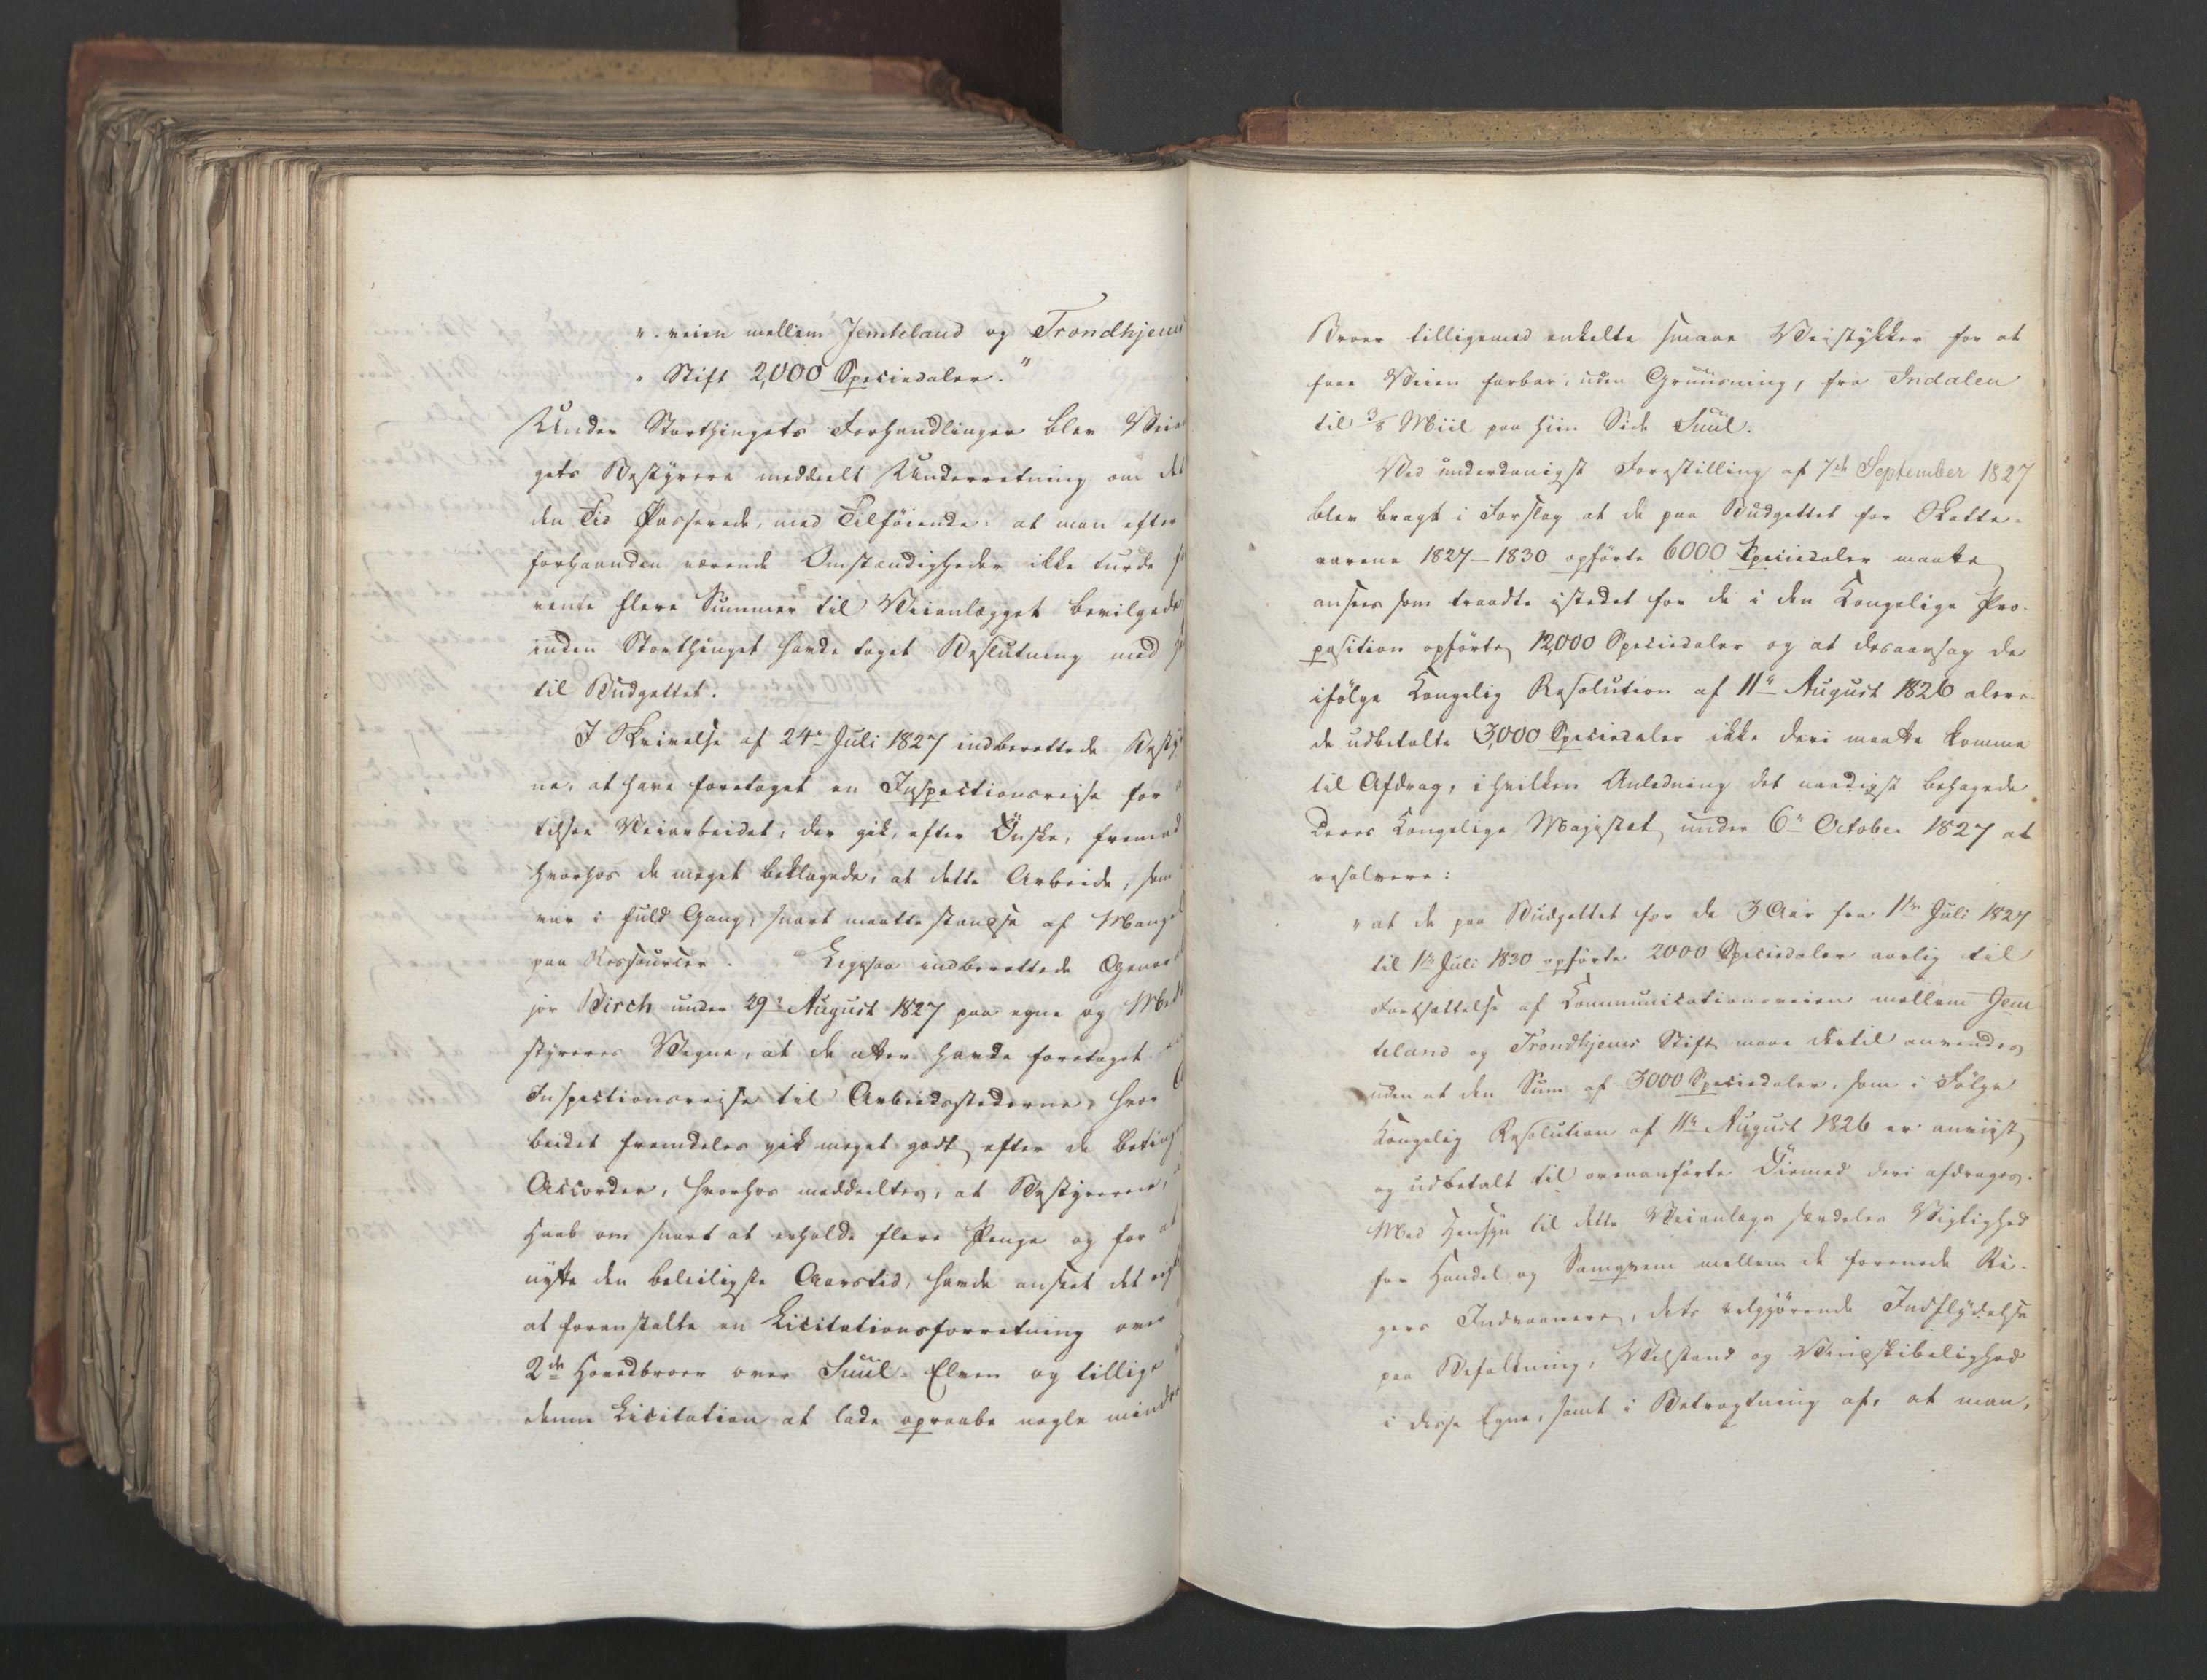 ". veien mellem Jemteland og Trondhjems
" Stift 2,000 Speciedaler."
Under Storthingets Forhandlinger blev Vei
gets Bestyrere meddeelt Underretning om det
den Tid Passerede, med Tilføiende: at man efter
forhaanden værende Omstændigheder ikke turde
vente flere Summer til Veianlægget bevilgede
inden Storthinget havde taget Beslutning med
til Budgettet.
I Skrivelse af 24de Juli 1827 indberettede Besty
ne, at have foretaget en Inspectionsreise for
tilsee Veiarbeidet, der gik, efter Önske, fremad
hvorhos de meget beklagede, at dette Arbeide, som
var i fuld Gang, snart maatte standse af Mangel
paa Ressourcer. Ligesaa indberettede General
jor Birch under 29de August 1827 paa egne og Med
styreres Vegne, at de atter havde foretaget
Inspectionsreise til Arbeidsstederne, hvor
beidet fremdeles gik meget godt efter de beting
Accorder, hvorhos meddeeltes, at Bestyrerne,
Haab om snart at erholde flere Penge og for at
nytte den beleiligste Aarstid, havde anseet det
at foranstalte en Licitationsforretning over
2de Hovedbroer over Suul-Elven og tillige
denne Licitation at lade opraabe nogle mindre
Broer tilligemed enkelte smaae Veistykker for at
faae Veien farbar, uden Gruusning, fra Indalen
til 3/8 Miil paa hiin Side Suul.
Ved underdanigst Forestilling af 7de September 1827
blev bragt i Forslag at de paa Budgettet for Skatte-
aarene 1827-1830 opförte 6000 Speciedaler maatte
ansees som traadte istedet for de i den Kongelige Pro-
position opförte 12,000 Speciedaler og at desaarsag de
ifölge Kongelig Resolution af 11te August 1826 alere-
de udbetalte 3,000 Speciedaler ikke deri maatte komme
til Afdrag, i hvilken Anledning det naadigst behagede
Deres Kongelige Majestet under 6te October 1827 at
resolvere:
"at de paa Budgettet for de 3 Aar fra 1ste Juli 1827
til 1ste Juli 1830 opförte 2000 Speciedaler aarlig til
Fortsættelse af Communicationsveien mellem Jem
teland og Trondhjems Stift maae dertil anvendes
uden at den Sum af 3000 Speciedaler, som i Fölge
Kongelig Resolution af 11te August 1826 er anviist
og udbetalt til ovenanförte Öiemed deri afdrages.
Med Hensyn til dette Veianlægs særdeles Vigtighed
for Handel og Samqvem mellem de forenede Ri-
gers Indvaanere, dets velgjörende Indflydelse
paa Befolkning, Velstand og Vindskibelighed
i disse Egne, samt i Betragtning af, at man,